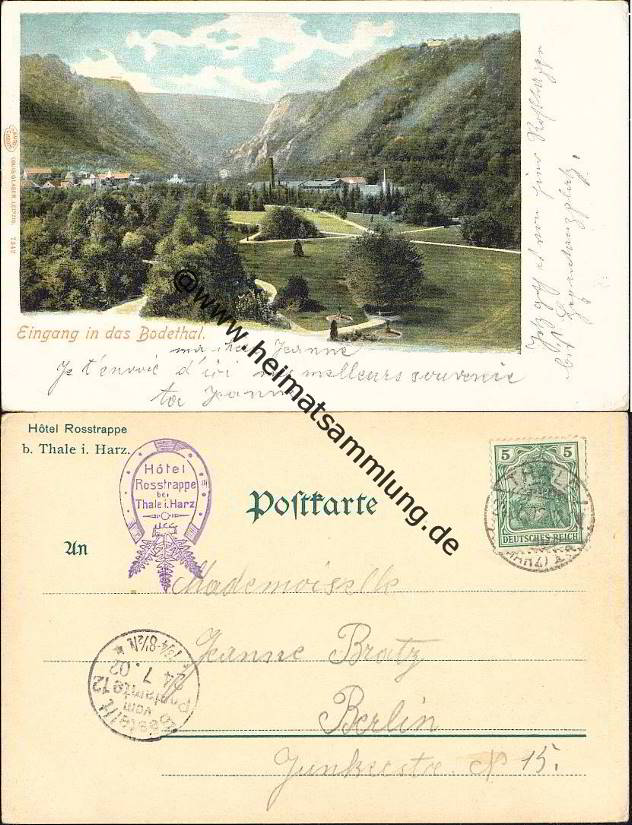 Eingang in das Bodethal.
ma chère Jeanne
Je t'envoie d'ici
meilleurs souvenir
ta Jeanne
@www.heimatsammlung.de
Hôtel Rosstrappe
b. Thale i. Harz.
Hôtel
Rosstrappe
bei
Thale i. Harz
Postkarte
5 5
DEUTSCHES REICH
THALE
(HARZ)
An
Mademoiselle
Jeanne Bratz
Berlin
Junkerstr. № 15.
Bestellt
vom
Postamte 12
24.7.02
7¼-8½N